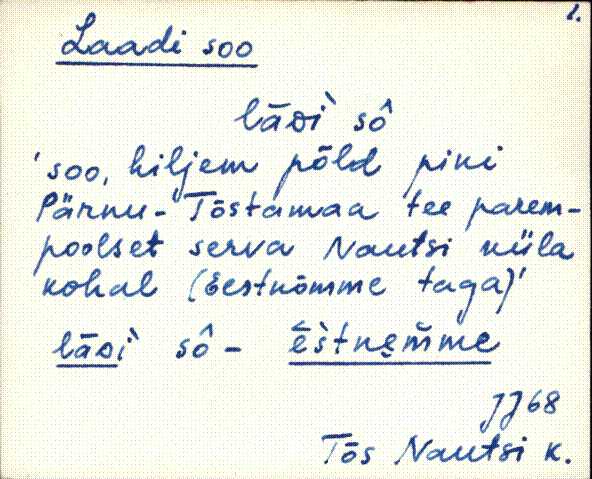 1.
Laadi soo
lāᴅì sô
'soo, hiljem põld piki
Pärnu-Tõstamaa tee parem-
poolset serva Nautsi küla
kohal (Eestnõmme taga)'
lāᴅì sô - ēstnẹm̆me
JJ68
Tõs Nautsi k.